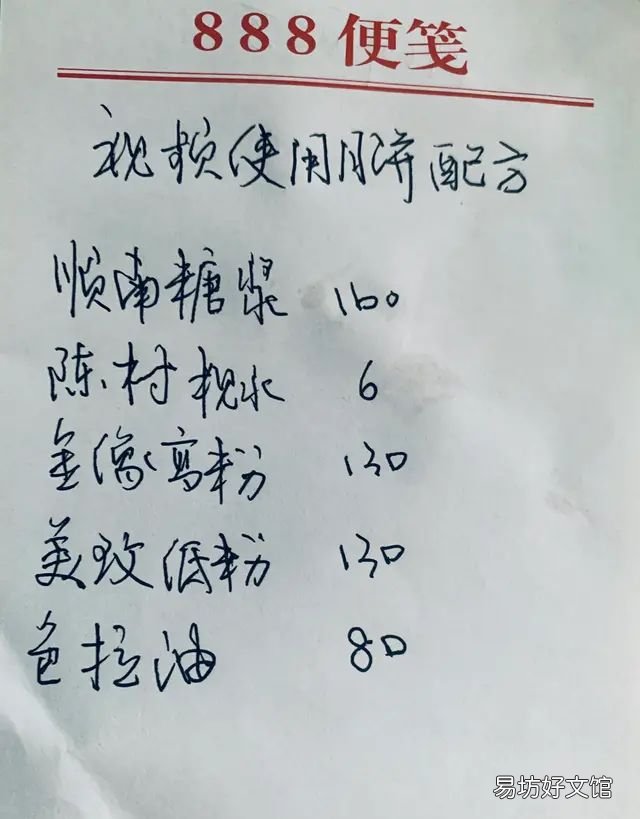 888便笺
视频使用月饼配方
顺南糖浆 160
陈村枧水 6
金像高粉 130
美玫低粉 130
色拉油 80
易坊好文馆